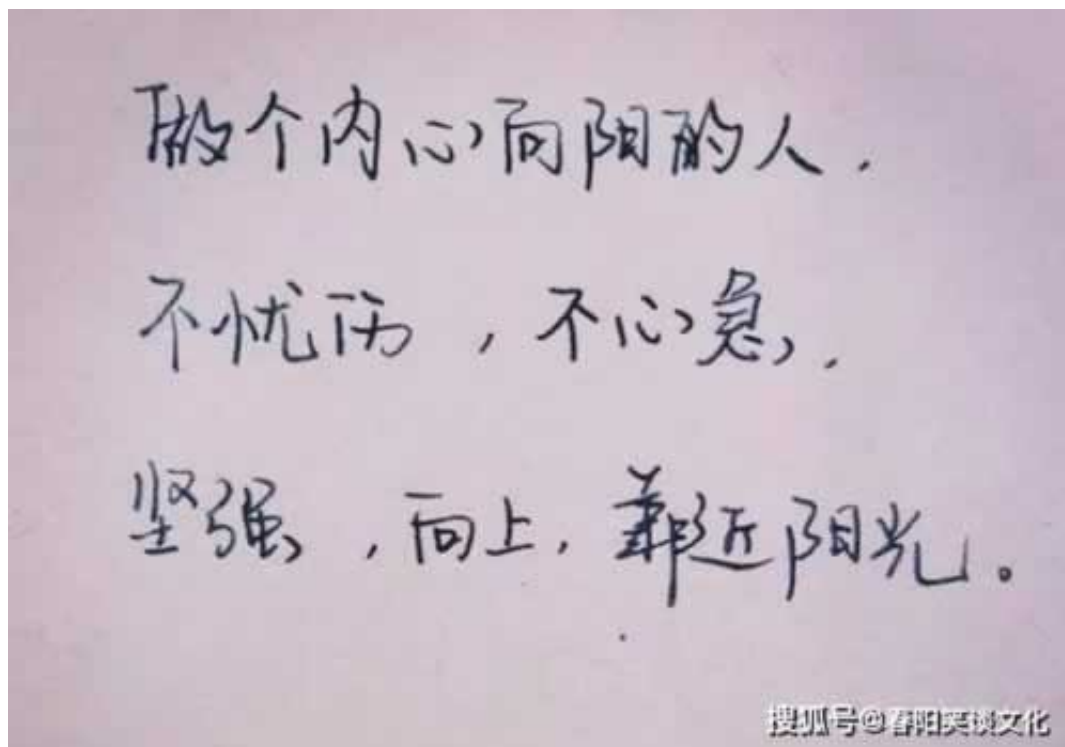 做个内心向阳的人.
不忧伤,不心急.
坚强,向上,靠近阳光。
搜狐号@春阳笑谈文化